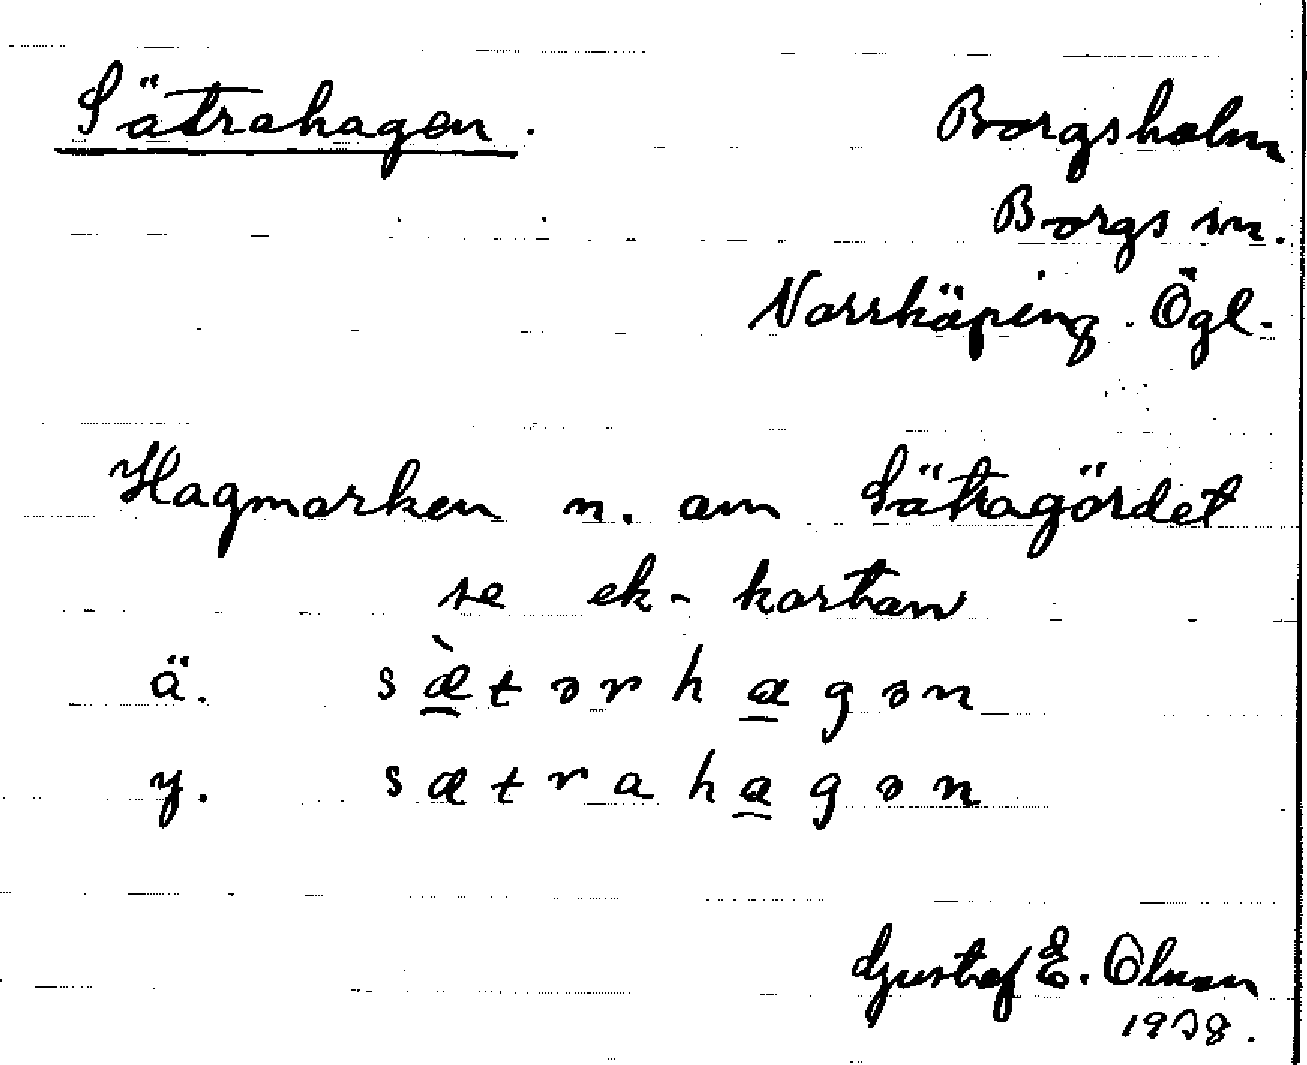 Sätrahagen.
Borgsholm
Borgs sn.
Norrköping. Ögl.
Hagmarken n. om Sätragördet
se ek-kartan
ä. sæ̀tərhagən
y. sætrahagən
Gustaf E. Olsson
1938.